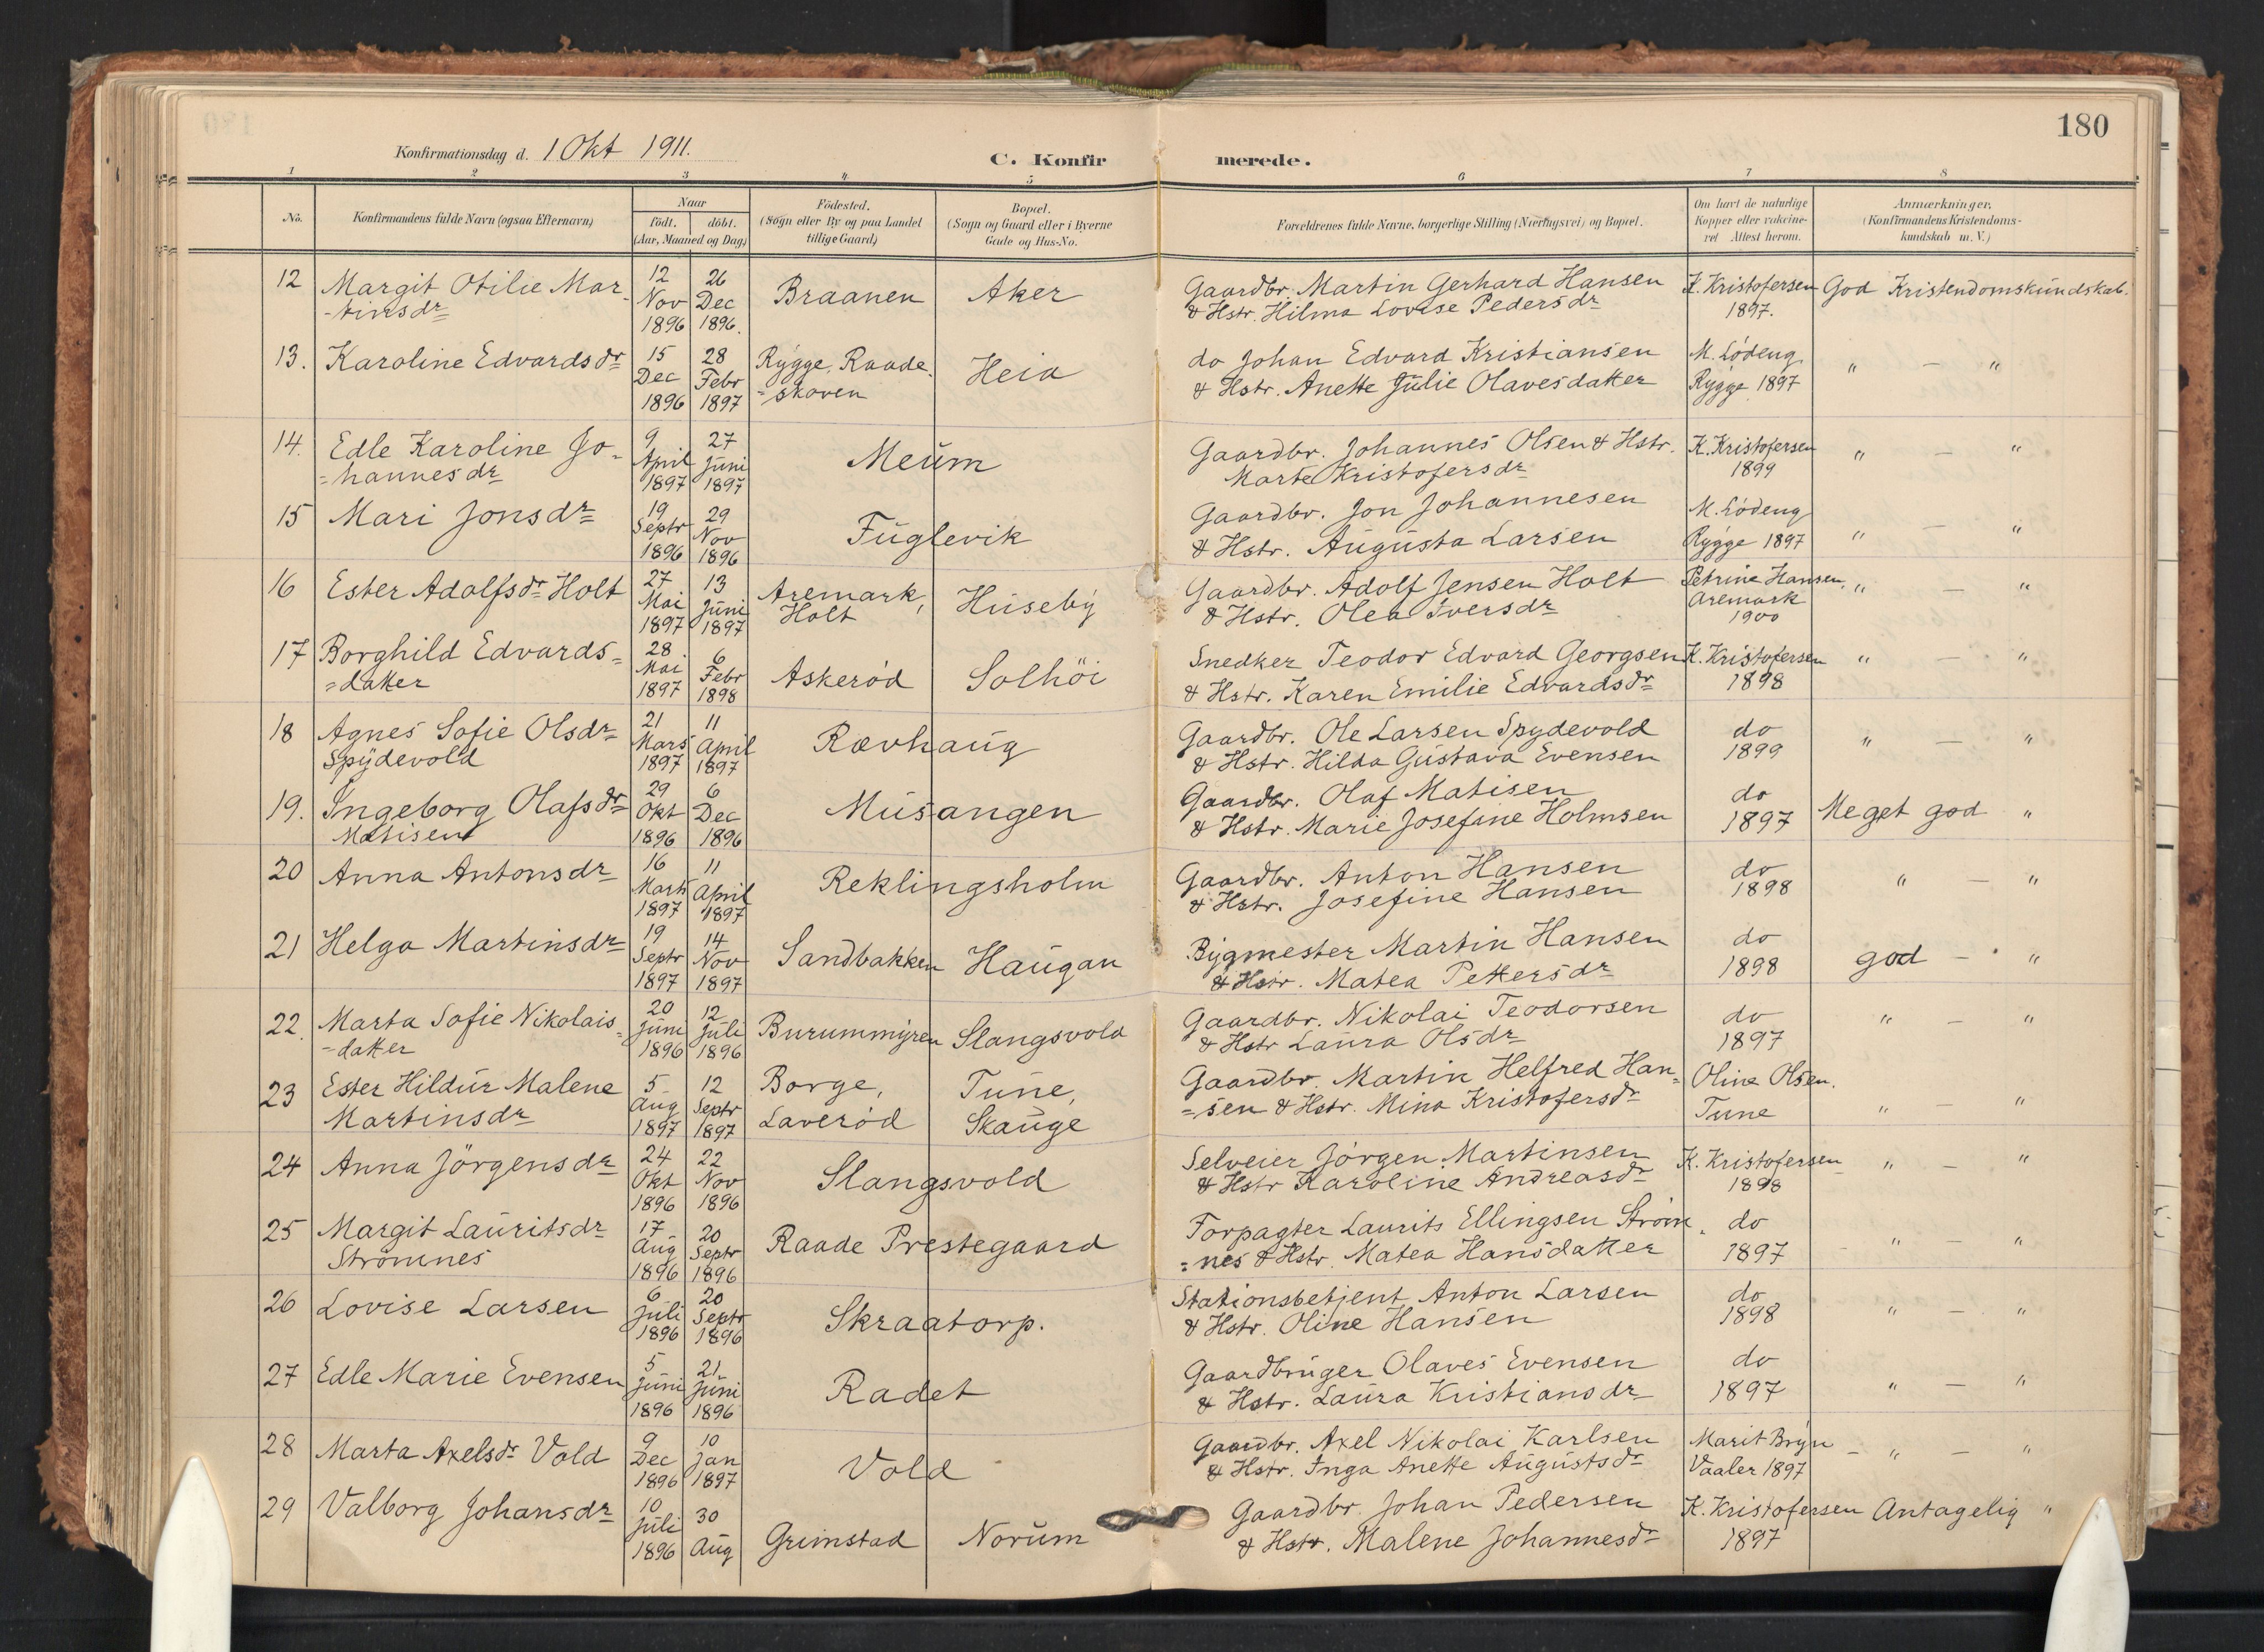 180
Konfirmationsdag d. 1 Okt 1911.
C. Konfirmerede.
1 2 3 4 5 6 7 8
No.
Konfirmandens fulde Navn (ogsaa Efternavn)
Naar
født. døbt.
(Aar, Maaned og Dag)
Födested.
(Sogn eller By og paa Landet
tillige Gaard)
Bopæl.
(Sogn og Gaard eller i Byerne
Gade og Hus-No.
Forældrenes fulde Navne, borgerlige Stilling (Næringsvei) og Bopæl.
Om havt de naturlige
Kopper eller vakcine-
ret Attest herom.
Anmærkninger.
(Konfirmandens Kristendoms-
kundskab m. V.)
12 Margit Otilie Mar- 12 Nov 1896 26 Dec 1896. Braanen Aker Gaardbr. Martin Gerhard Hansen K. Kristofersen God Kristendomskundskab.
-tinsdr & Hstr. Hilma Lovise Pedersdr 1897.
13. Karoline Edvardsdr 15 Dec 1896 28 Febr 1897 Rygge, Raade- Heia do Johan Edvard Kristiansen M. Lödeng " — "
=skoven & Hstr. Anette Julie Olavesdatter Rygge 1897
14. Edle Karoline Jo- 9 April 1897 27 Juni 1897 Meum Gaardbr. Johannes Olsen & Hstr. K. Kristofersen " — "
=hannesdr Marte Kristofersdr 1899
15 Mari Jonsdr 19 Septr 1896 29 Nov 1896 Fuglevik Gaardbr. Jon Johannesen M. Lödeng " — "
& Hstr. Augusta Larsen Rygge 1897
16 Ester Adolfsdr Holt 27 Mai 1897 13 Juni 1897 Aremark, Huseby Gaardbr. Adolf Jensen Holt Petrine Hansen. " — "
Holt & Hstr. Olea Iversdr Aremark
1900
17 Borghild Edvards= 28. Mai 1897 6 Febr 1898 Askeröd Solhöi Snedker Teodor Edvard Georgsen K. Kristofersen " — "
=datter & Hstr. Karen Emilie Edvardsdr 1898
18 Agnes Sofie Olsdr 21 Mars 1897 11 April 1897 Rævhaug Gaardbr. Ole Larsen Spydevold do " — "
Spydevold & Hstr. Hilda Gustava Evensen 1899
19. Ingeborg Olafsdr 29 Okt 1896 6 Dec 1896 Musangen Gaardbr. Olaf Matisen do Meget god "
Matisen & Hstr. Marie Josefine Holmsen 1897
20 Anna Antonsdr 16 Marts 1897 11 April 1897 Reklingsholm Gaardbr. Anton Hansen do " — "
& Hstr. Josefine Hansen 1898
21 Helga Martinsdr 19 Septr 1897 14 Nov 1897 Sandbakken Haugan Bygmester Martin Hansen do god — "
& Hstr. Matea Pettersdr 1898
22. Marta Sofie Nikolais= 20 Juni 1896 12 Juli 1896 Burummyren Slangsvold Gaardbr. Nikolai Teodorsen do " — "
-datter & Hstr Laura Olsdr 1897
23 Ester Hildur Malene 5 Aug 1897 12 Septr 1897 Borge, Tune, Gaardbr. Martin Helfred Han= Oline Olsen.
Martinsdr Laveröd Skauge =sen & Hstr. Mina Kristofersdr Tune " — "
24 Anna Jörgensdr 24 Okt 1896 22 Nov 1896 Slangsvold Selveier Jörgen Martinsen K. Kristofersen " — "
& Hstr Karoline Andreasdr 1898
25 Margit Lauritsdr 17 Aug 1896 20 Septr 1896 Raade Prestegaard Forpagter Laurits Ellingsen Ström- do
Strömnes =nes & Hstr. Matea Hansdatter 1897 " — "
26 Lovise Larsen 6 Juli 1896 20 Septr 1896 Skraatorp. Stationsbetjent Anton Larsen do " — "
& Hstr. Oline Hansen 1898
27 Edle Marie Evensen 5 Juni 1896 21. Juni 1896 Radet Gaardbruger Olaves Evensen do
& Hstr. Laura Kristiansdr 1897 " — "
28 Marta Axelsdr Vold 9 Dec 1896 10 Jan 1897 Vold Gaardbr. Axel Nikolai Karlsen Marit Bryn — " — "
& Hstr. Inga Anette Augustsdr Vaaler 1897
29 Valborg Johansdr 10 Juli 1896 30 Aug Grimstad Norum Gaardbr Johan Pedersen K. Kristofersen Antagelig "
& Hstr. Malene Johannesdr 1897